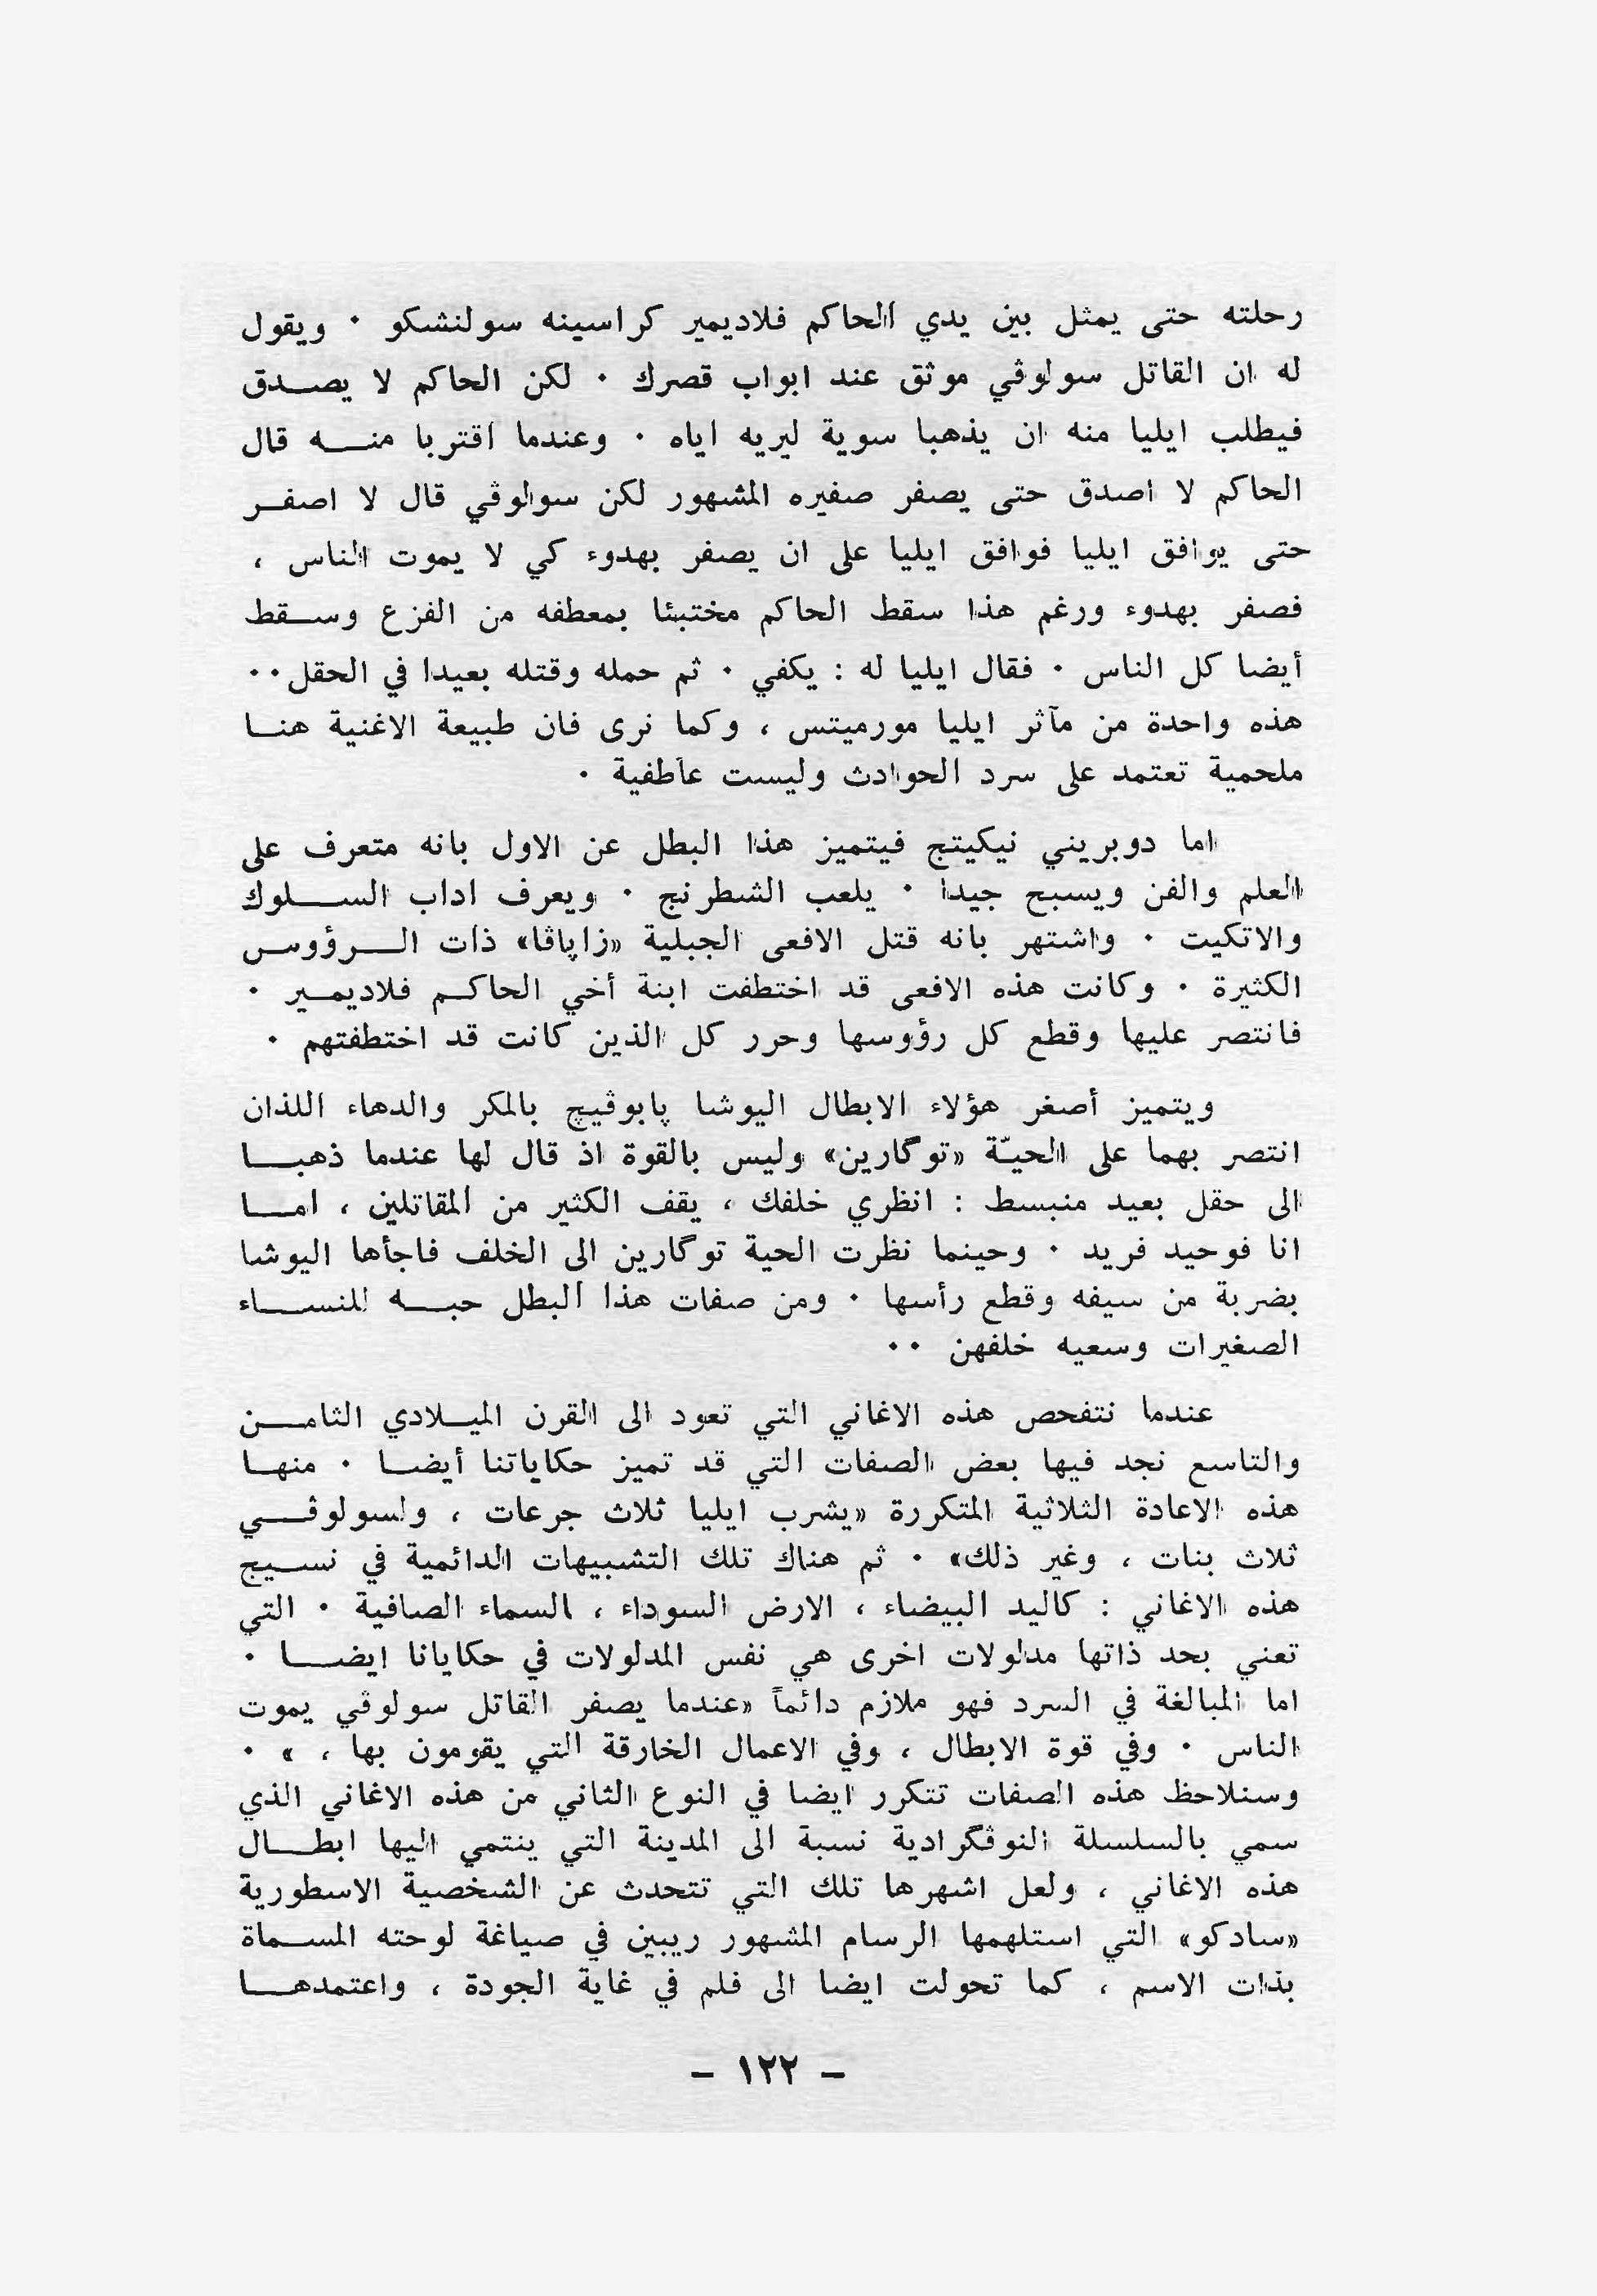 رحلته حتى يمثل بين يدي الحاكم فلاديمير كراسينه سولنشكو ٠ ويقول
له ان القاتل سولوڤي موثق عند ابواب قصرك ٠ لكن الحاكم لا يصدق
فيطلب ايليا منه ان يذهبا سوية ليريه اياه ٠ وعندما اقتربا منه قال
الحاكم لا اصدق حتى يصفر صفيره المشهور لكن سولوڤي قال لا اصفر
حتى يوافق ايليا فوافق ايليا على ان يصفر بهدوء كي لا يموت الناس ،
فصفر بهدوء ورغم هذا سقط الحاكم مختبئا بمعطفه من الفزع وسقط
أيضا كل الناس ٠ فقال ايليا له : يكفي ٠ ثم حمله وقتله بعيدا في الحقل٠٠
هذه واحدة من مآثر ايليا مورميتس ، وكما نرى فان طبيعة الاغنية هنا
ملحمية تعتمد على سرد الحوادث وليست عاطفية ٠
اما دوبريني نيكيتج فيتميز هذا البطل عن الاول بانه متعرف على
العلم والفن ويسبح جيدا ٠ يلعب الشطرنج ٠ ويعرف اداب السلوك
والاتكيت ٠ واشتهر بانه قتل الافعى الجبلية «زاپاڤا» ذات الرؤوس
الكثيرة ٠ وكانت هذه الافعى قد اختطفت ابنة أخي الحاكم فلاديمير ٠
فانتصر عليها وقطع كل رؤوسها وحرر كل الذين كانت قد اختطفتهم ٠
ويتميز أصغر هؤلاء الابطال اليوشا پابوڤيچ بالمكر والدهاء اللذان
انتصر بهما على الحيّة «توگارين» وليس بالقوة اذ قال لها عندما ذهبا
الى حقل بعيد منبسط : انظري خلفك ، يقف الكثير من المقاتلين ، اما
انا فوحيد فريد ٠ وحينما نظرت الحية توگارين الى الخلف فاجأها اليوشا
بضربة من سيفه وقطع رأسها ٠ ومن صفات هذا البطل حبه للنساء
الصغيرات وسعيه خلفهن ٠٠
عندما نتفحص هذه الاغاني التي تعود الى القرن الميلادي الثامن
والتاسع نجد فيها بعض الصفات التي قد تميز حكاياتنا أيضا ٠ منها
هذه الاعادة الثلاثية المتكررة «يشرب ايليا ثلاث جرعات ، ولسولوڤي
ثلاث بنات ، وغير ذلك» ٠ ثم هناك تلك التشبيهات الدائمية في نسيج
هذه الاغاني : كاليد البيضاء ، الارض السوداء ، السماء الصافية ٠ التي
تعني بحد ذاتها مدلولات اخرى هي نفس المدلولات في حكايانا ايضا ٠
اما المبالغة في السرد فهو ملازم دائماً «عندما يصفر القاتل سولوڤي يموت
الناس ٠ وفي قوة الابطال ، وفي الاعمال الخارقة التي يقومون بها ، » ٠
وسنلاحظ هذه الصفات تتكرر ايضا في النوع الثاني من هذه الاغاني الذي
سمي بالسلسلة النوڤگرادية نسبة الى المدينة التي ينتمي اليها ابطال
هذه الاغاني ، ولعل اشهرها تلك التي تتحدث عن الشخصية الاسطورية
«سادكو» التي استلهمها الرسام المشهور ريبين في صياغة لوحته المسماة
بذات الاسم ، كما تحولت ايضا الى فلم في غاية الجودة ، واعتمدها
– ١٢٢ –